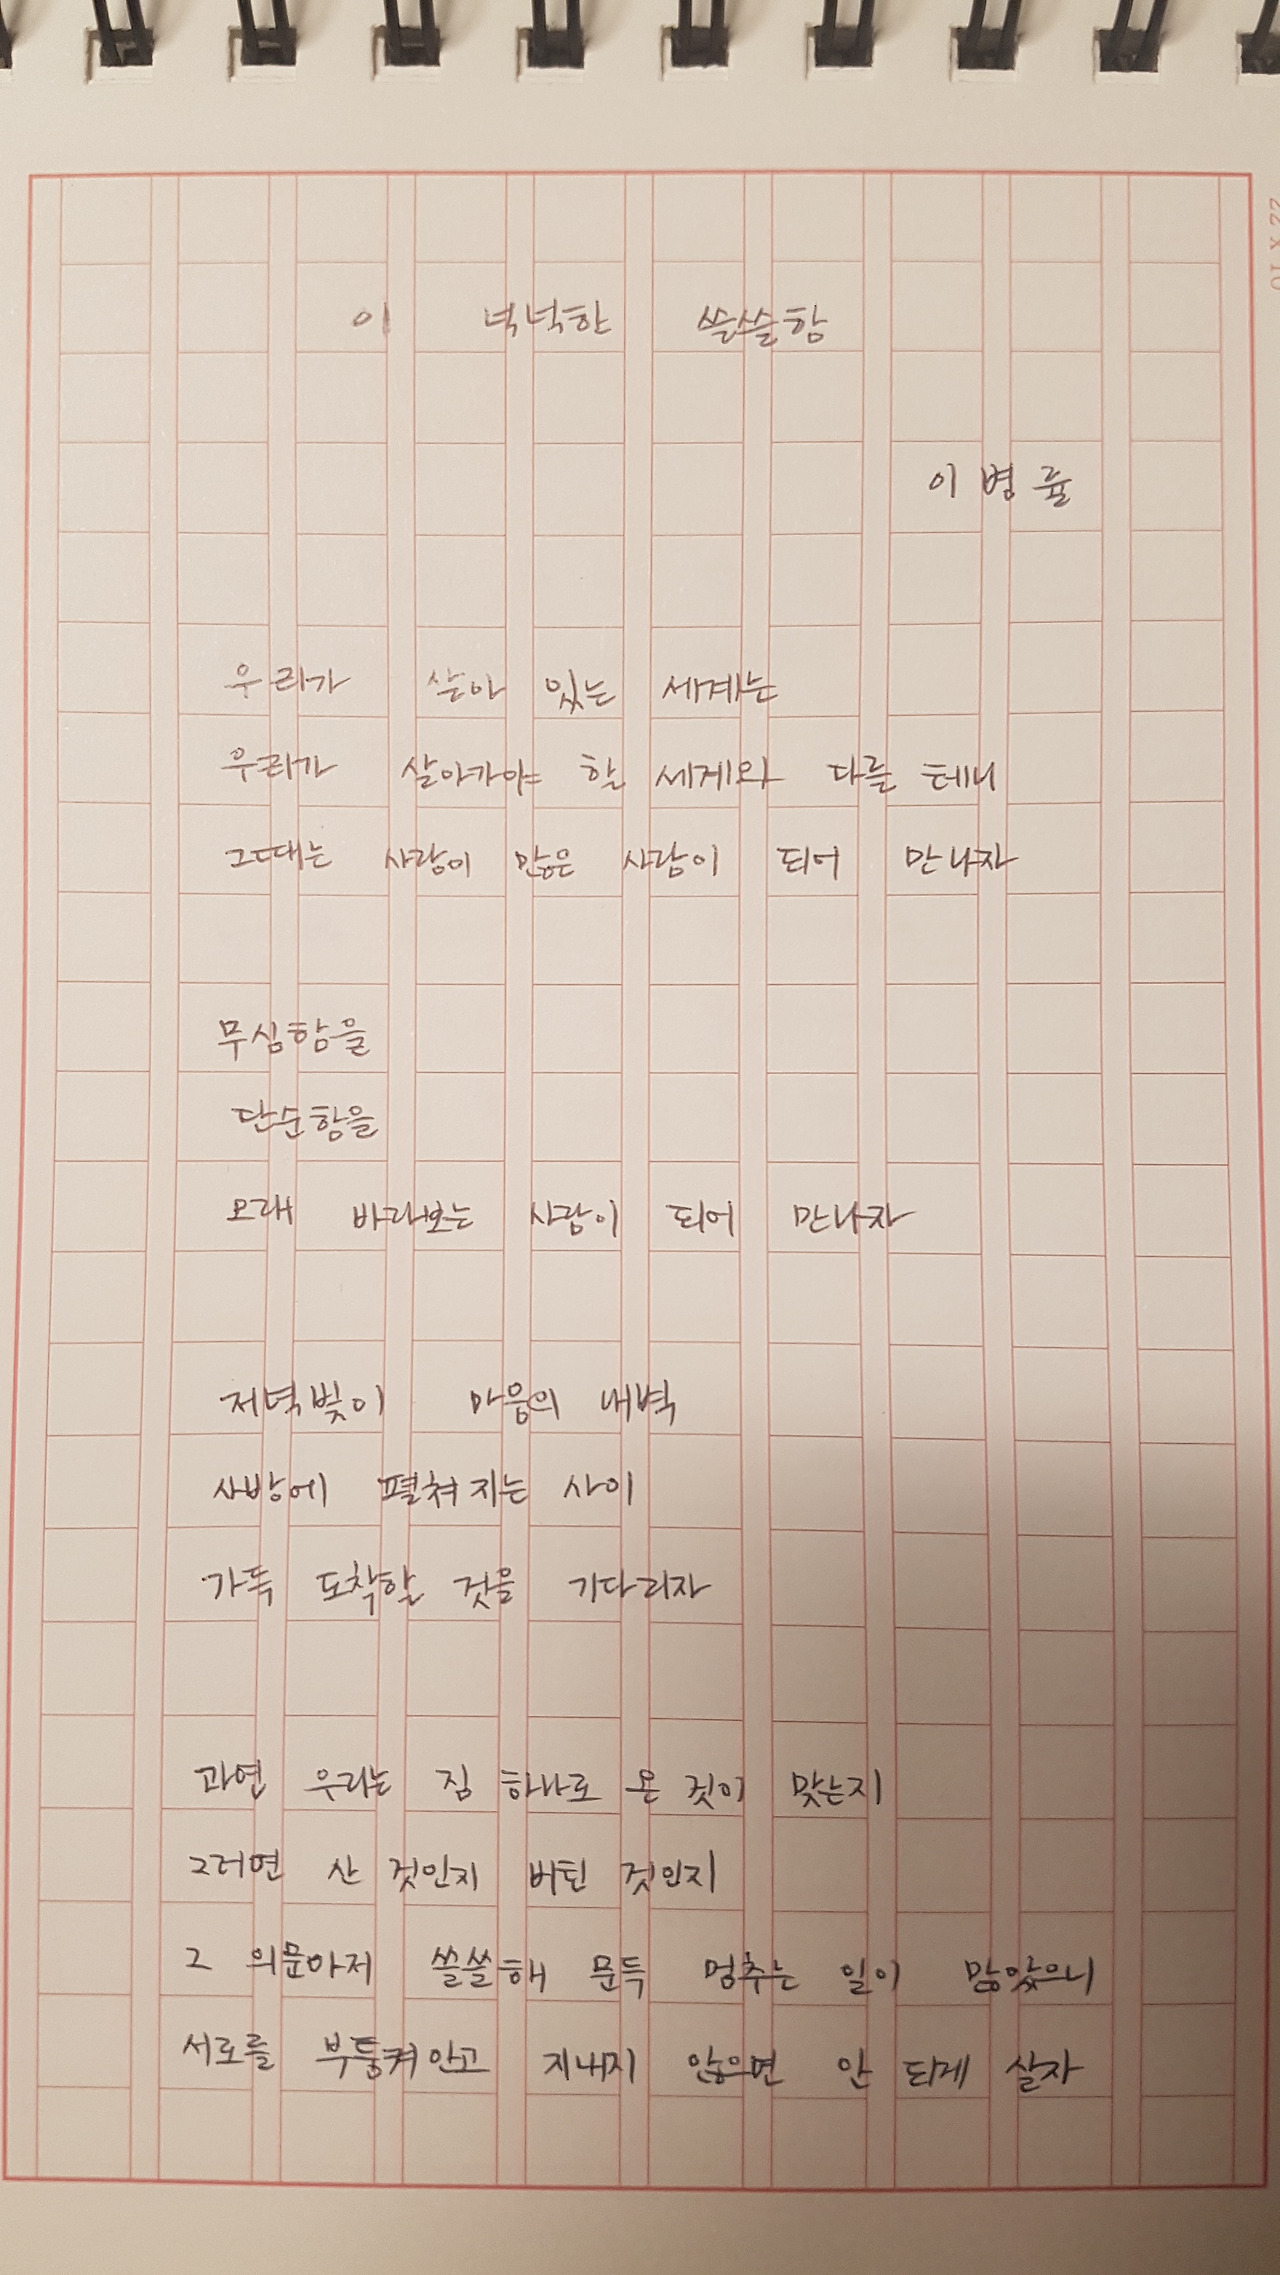 이 넉넉한 쓸쓸함
이병률
우리가 살아 있는 세계는
우리가 살아가야 할 세계와 다를 테니
그때는 사랑이 많은 사람이 되어 만나자
무심함을
단순함을
오래 바라보는 사람이 되어 만나자
저녁빛이 마음의 내벽
사방에 펼쳐지는 사이
가득 도착할 것을 기다리자
과연 우리는 점 하나로 온 것이 맞는지
그러면 산 것인지 버틴 것인지
그 의문마저 쓸쓸해 문득 멈추는 일이 많았으니
서로를 부둥켜안고 지내지 않으면 안 되게 살자
22 X 10